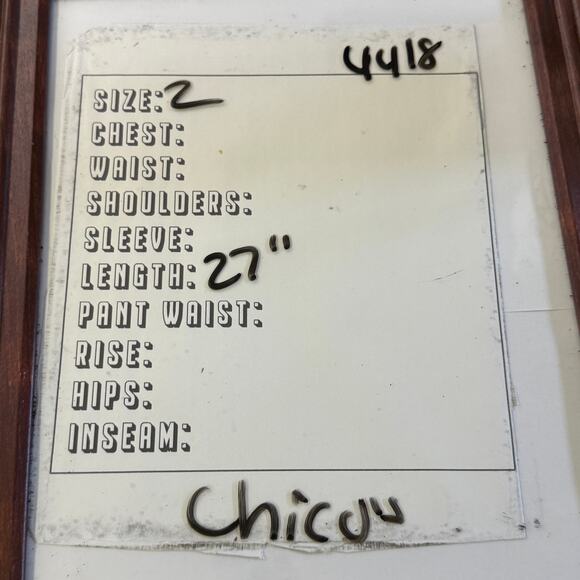 4418
SIZE: 2
CHEST:
WAIST:
SHOULDERS:
SLEEVE:
LENGTH: 27"
PANT WAIST:
RISE:
HIPS:
INSEAM: